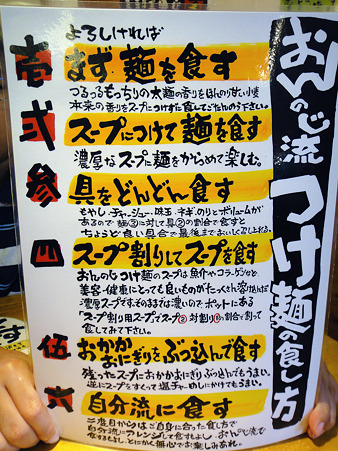 おんのじ流 つけ麺の食し方
よろしければ
壱 まず麺を食す
つるつるもっちりの太麺の香りをほんのり甘い小麦
本来の香りをスープにつけずに食してごらん下さい。
弐 スープにつけて麺を食す
濃厚なスープに麺をからめて楽しむ。
参 具をどんどん食す
もやし、チャーシュー、味玉、ネギ、のりとボリュームが
あるので麺②に対して具②の割合で食すと
ちょうど良い割合で最後までおいしく召し上がる。
四 スープ割りしてスープを食す
おんのじつけ麺のスープは魚介やコラーゲンなど
美容・健康にとっても良いものがたっぷり溶け込んだ
濃厚スープです。そのままでは濃いので、ポットにある
「スープ割り用スープでスープ②対割り①の割合で割って
食してみて下さい。
伍 おかか
おにぎりをぶっ込んで食す
残ったスープにおかかおにぎりぶっ込んでもうまい。
逆にスープをすくって塩チャーめしにかけてもうまい。
六 自分流に食す
二度目からはご自身に合った食し方で
自分流にアレンジして食すもよし、おんのじ流で
食するもよし、とにかく無心でお楽しみあれ。